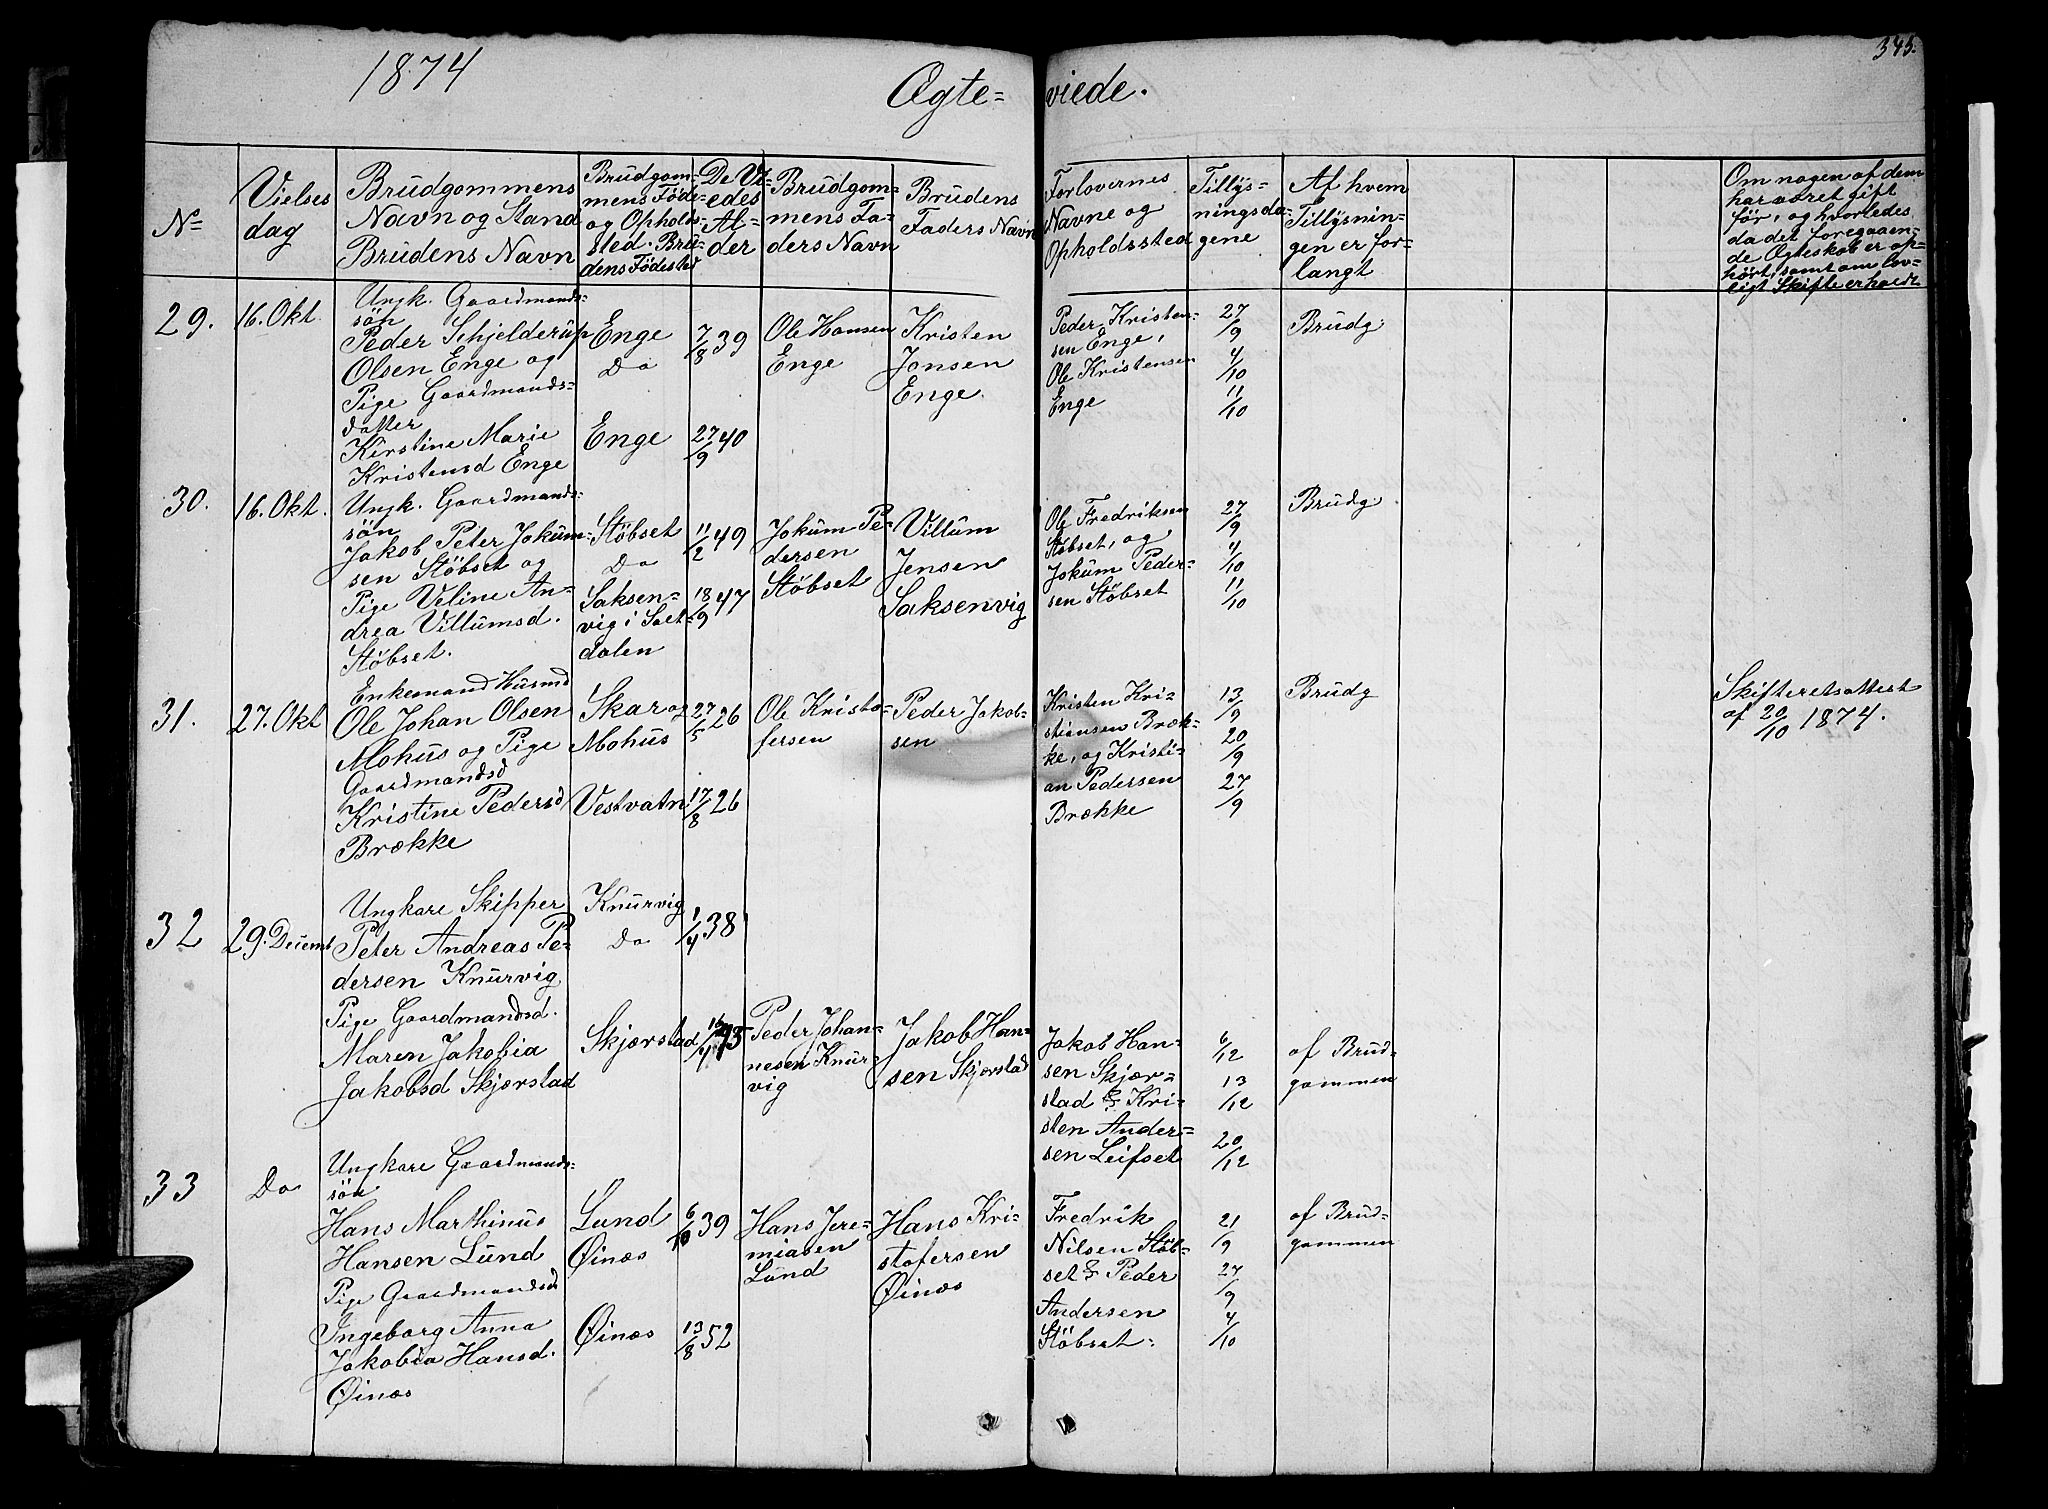 1874
Ægte=
viede.
345.
No
Vielses
dag
Brudgommens
Navn og Stand
Brudens Navn
Brudgom-
mens Føde-
og Opholds-
sted. Bru-
dens Fødested
De Vi-
edes
Al-
der
Brudgom-
mens Fa-
ders Navn
Brudens
Faders Navn
Forlovernes
Navne og
Opholdssted
Tillys-
ningsda-
gene
Af hvem
Tillysnin-
gen er for-
langt
Om nogen af dem
har været gift
før, og hvorledes
da det foregaaen-
de Ægteskab er op-
hørt, samt om lov-
ligt Skifte er holdt
29.
16. Okt.
Ungk. Gaardmands-
søn
Peder Schjelderup
Olsen Enge og
Pige Gaardmands-
datter
Kirstine Marie
Kristensd Enge
Enge
Do
Enge
7/8 39
27/9 40
Ole Hansen
Enge
Kristen
Jensen
Enge.
Peder Kristen-
sen Enge,
Ole Kristensen
Enge
27/9
4/10
11/10
Brudg.
30.
16. Okt.
Ungk. Gaardmands-
søn
Jakob Peter Jokum-
sen Støbset og
Pige Veline An-
drea Villumsd.
Støbset.
Støbset
Do
Saksen-
vig i Salt-
dalen
11/2 49
18/9 47
Jokum Pe-
dersen
Støbset
Villum
Jensen
Saksenvig
Ole Fredriksen
Støbset, og
Jokum Peder-
sen Støbset
27/9
4/10
11/10
Brudg.
31.
27. Okt
Enkemand Husmd
Ole Johan Olsen
Mohus og Pige
Gaardmandsd
Kristine Pedersd
Brække
Skar og
Mohus
Vestvatn
27/5 26
17/8 26
Ole Kristo-
fersen
Peder Jakob-
sen
Kristen Kri-
stiansen Bræk-
ke, og Kristi-
an Pedersen
Brække
13/9
20/9
27/9
Brudg
Skifteretsattest
af 20/10 1874.
32
29. Decemb
Ungkare Skipper
Peter Andreas Pe-
dersen Knurvig
Pige Gaardmandsd.
Maren Jakobia
Jakobsd Skjærstad
Knurvig
Do
Skjærstad
1/4 38
Peder Johan-
nesen Knur-
vig
Jakob Han-
sen Skjærstad
Jakob Han-
sen Skjær-
stad & Kri-
sten Ander-
sen Leifset
6/12
13/12
20/12
af Brud-
gommen
33
Do
Ungkare Gaardmands-
søn
Hans Marthinus
Hansen Lund
Pige Gaardmandsd
Ingeborg Anna
Jakobia Hansd.
Øinæs
Lund
Øinæs
Øinæs
6/10 39
13/8 52
Hans Jere-
miasen
Lund
Hans Kri-
stofersen
Øinæs
Fredrik
Nilsen Støb-
set & Peder
Andersen
Støbset.
21/9
27/9
4/10
af Brud-
gommen